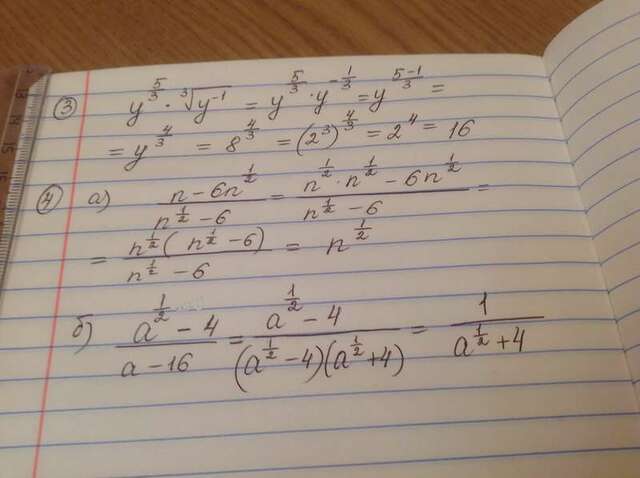 ③ y^{5/3} · ∛(y^{-1}) = y^{5/3} · y^{-1/3} = y^{(5-1)/3} =
= y^{4/3} = 8^{4/3} = (2^3)^{4/3} = 2^4 = 16
④ а) (n - 6n^{1/2})/(n^{1/2} - 6) = (n^{1/2} · n^{1/2} - 6n^{1/2})/(n^{1/2} - 6) =
= (n^{1/2}(n^{1/2} - 6))/(n^{1/2} - 6) = n^{1/2}
б) (a^{1/2} - 4)/(a - 16) = (a^{1/2} - 4)/((a^{1/2} - 4)(a^{1/2} + 4)) = 1/(a^{1/2} + 4)